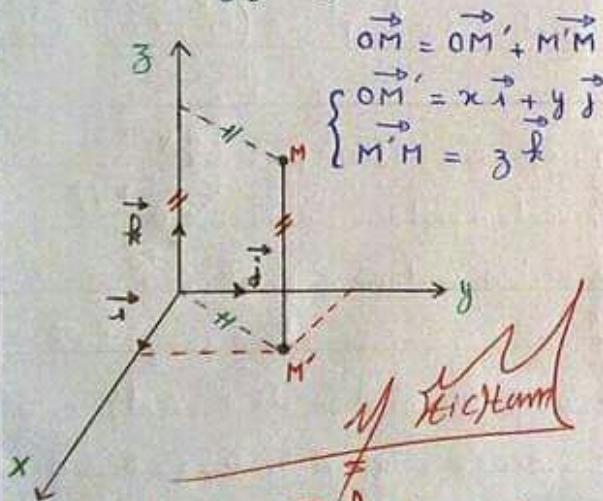 OM→ = OM'→ + M'M→
{ OM'→ = x i→ + y j→
M'M→ = z k→
z
M
k→
j→
i→
y
M'
x